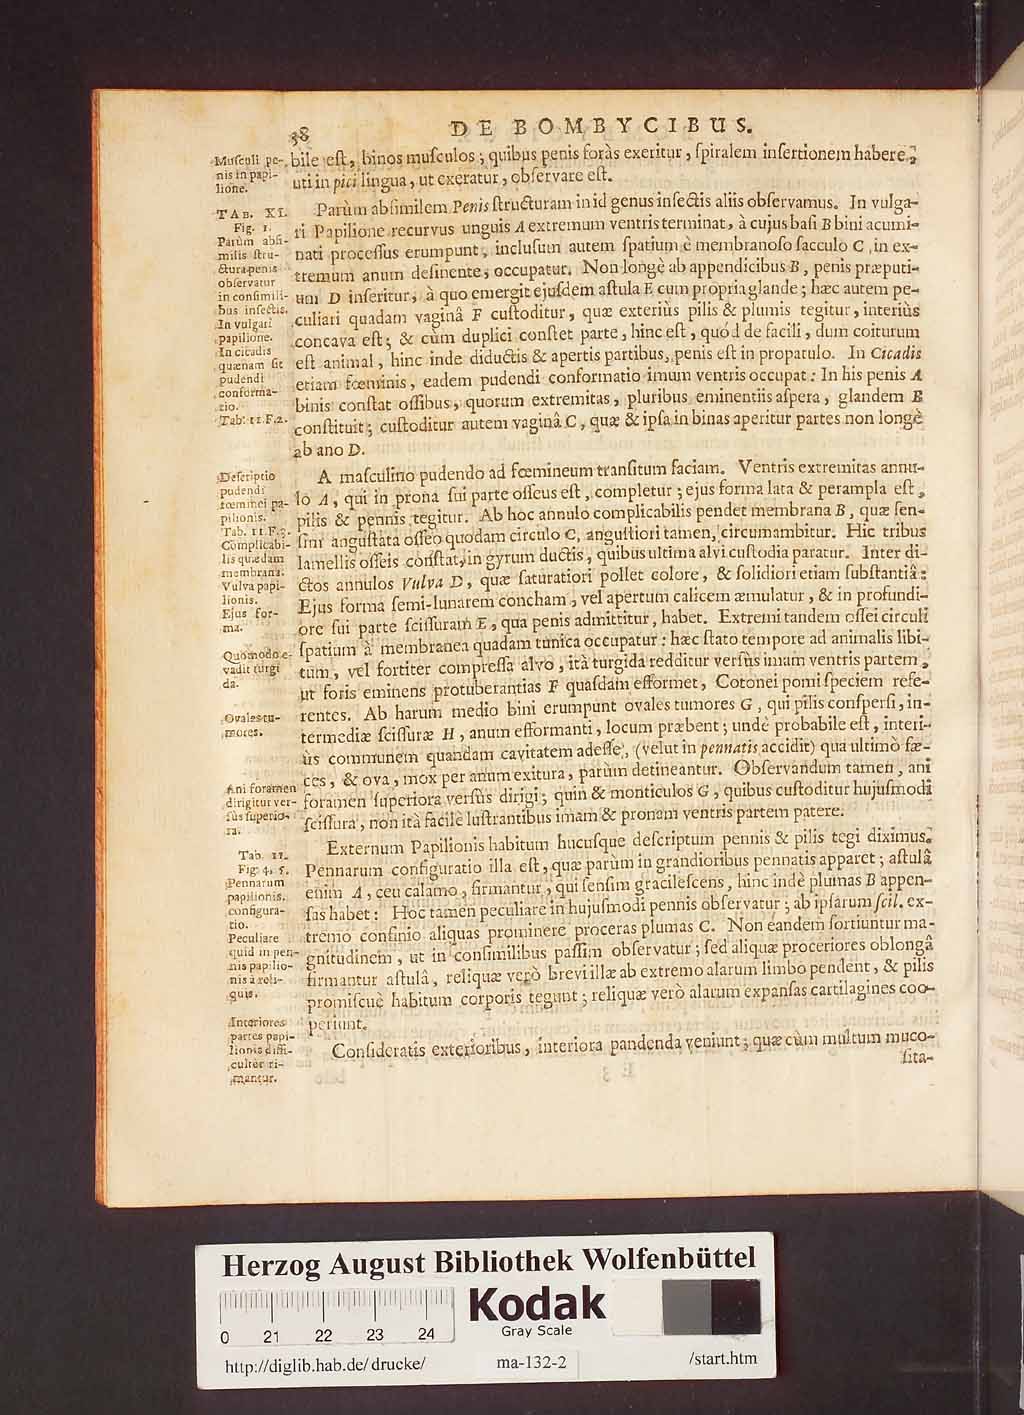 38
DE BOMBYCIBUS.
Musculi pe-
nis in papi-
lione.
bile est, binos musculos; quibus penis foràs exeritur, spiralem insertionem habere;
uti in pici lingua, ut exeratur, observare est.
TAB. XI.
Fig. 1.
Parùm absi-
milis stru-
ctura penis
observatur
in consimili-
bus insectis.
In vulgari
papilione.
In cicadis
quænam sit
pudendi
conforma-
tio.
Tab: 11.F.2.
Parùm absimilem Penis structuram in id genus insectis aliis observamus. In vulga-
ri Papilione recurvus unguis A extremum ventris terminat, à cujus basi B bini acumi-
nati processus erumpunt, inclusum autem spatium è membranoso sacculo C, in ex-
tremum anum desinente, occupatur. Non longè ab appendicibus B, penis præputi-
um D inseritur, à quo emergit ejusdem astula E cum propria glande; hæc autem pe-
culiari quadam vaginâ F custoditur, quæ exteriùs pilis & plumis tegitur, interiùs
concava est; & cùm duplici constet parte, hinc est, quód de facili, dum coiturum
est animal, hinc inde diductis & apertis partibus, penis est in propatulo. In Cicadis
etiam fœminis, eadem pudendi conformatio imum ventris occupat: In his penis A
binis constat ossibus, quorum extremitas, pluribus eminentiis aspera, glandem B
constituit; custoditur autem vaginâ C, quæ & ipsa in binas aperitur partes non longè
ab ano D.
Descriptio
pudendi
fœminei pa-
pilionis.
Tab. 11.F.3.
Complicabi-
lis quædam
membrana.
Vulva papi-
lionis.
Ejus for-
ma.
Quomodo e-
vadit turgi
da.
Ovales tu-
mores.
Ani foramen
dirigitur ver-
sùs superio-
ra.
A masculino pudendo ad fœmineum transitum faciam. Ventris extremitas annu-
lo A, qui in prona sui parte osseus est, completur; ejus forma lata & perampla est,
pilis & pennis tegitur. Ab hoc annulo complicabilis pendet membrana B, quæ sen-
sim angustata osseo quodam circulo C, angustiori tamen, circumambitur. Hic tribus
lamellis osseis constat, in gyrum ductis, quibus ultima alvi custodia paratur. Inter di-
ctos annulos Vulva D, quæ saturatiori pollet colore, & solidiori etiam substantiâ:
Ejus forma semi-lunarem concham, vel apertum calicem æmulatur, & in profundi-
ore sui parte scissuram E, qua penis admittitur, habet. Extremi tandem ossei circuli
spatium à membranea quadam tunica occupatur: hæc stato tempore ad animalis libi-
tum, vel fortiter compressa alvo, ità turgida redditur versùs imam ventris partem,
ut foris eminens protuberantias F quasdam efformet, Cotonei pomi speciem refe-
rentes. Ab harum medio bini erumpunt ovales tumores G, qui pilis conspersi, in-
termediæ scissuræ H, anum efformanti, locum præbent; undè probabile est, interi-
ùs communem quandam cavitatem adesse, (velut in pennatis accidit) qua ultimò fæ-
ces, & ova, mox per anum exitura, parùm detineantur. Observandum tamen, ani
foramen superiora versùs dirigi; quin & monticulos G, quibus custoditur hujusmodi
scissura, non ità facilè lustrantibus imam & pronam ventris partem patere.
Tab. 11.
Fig: 4. 5.
Pennarum
papilionis.
configura-
tio.
Peculiare
quid in pen-
nis papilio-
nis à reli-
quis.
Externum Papilionis habitum hucusque descriptum pennis & pilis tegi diximus.
Pennarum configuratio illa est, quæ parùm in grandioribus pennatis apparet; astulâ
enim A, ceu calamo, firmantur, qui sensim gracilescens, hinc indè plumas B appen-
sas habet: Hoc tamen peculiare in hujusmodi pennis observatur; ab ipsarum scil. ex-
tremo confinio aliquas prominere proceras plumas C. Non eandem sortiuntur ma-
gnitudinem, ut in consimilibus passim observatur; sed aliquæ proceriores oblongâ
firmantur astulâ, reliquæ verò brevi illæ ab extremo alarum limbo pendent, & pilis
promiscuè habitum corporis tegunt; reliquæ verò alarum expansas cartilagines coo-
periunt.
Interiores
partes papi-
lionis diffi-
culter ri-
mantur.
Consideratis exterioribus, interiora pandenda veniunt; quæ cùm multum muco-
sita-
Herzog August Bibliothek Wolfenbüttel
Kodak
Gray Scale
0 21 22 23 24
http://diglib.hab.de/drucke/
ma-132-2
/start.htm